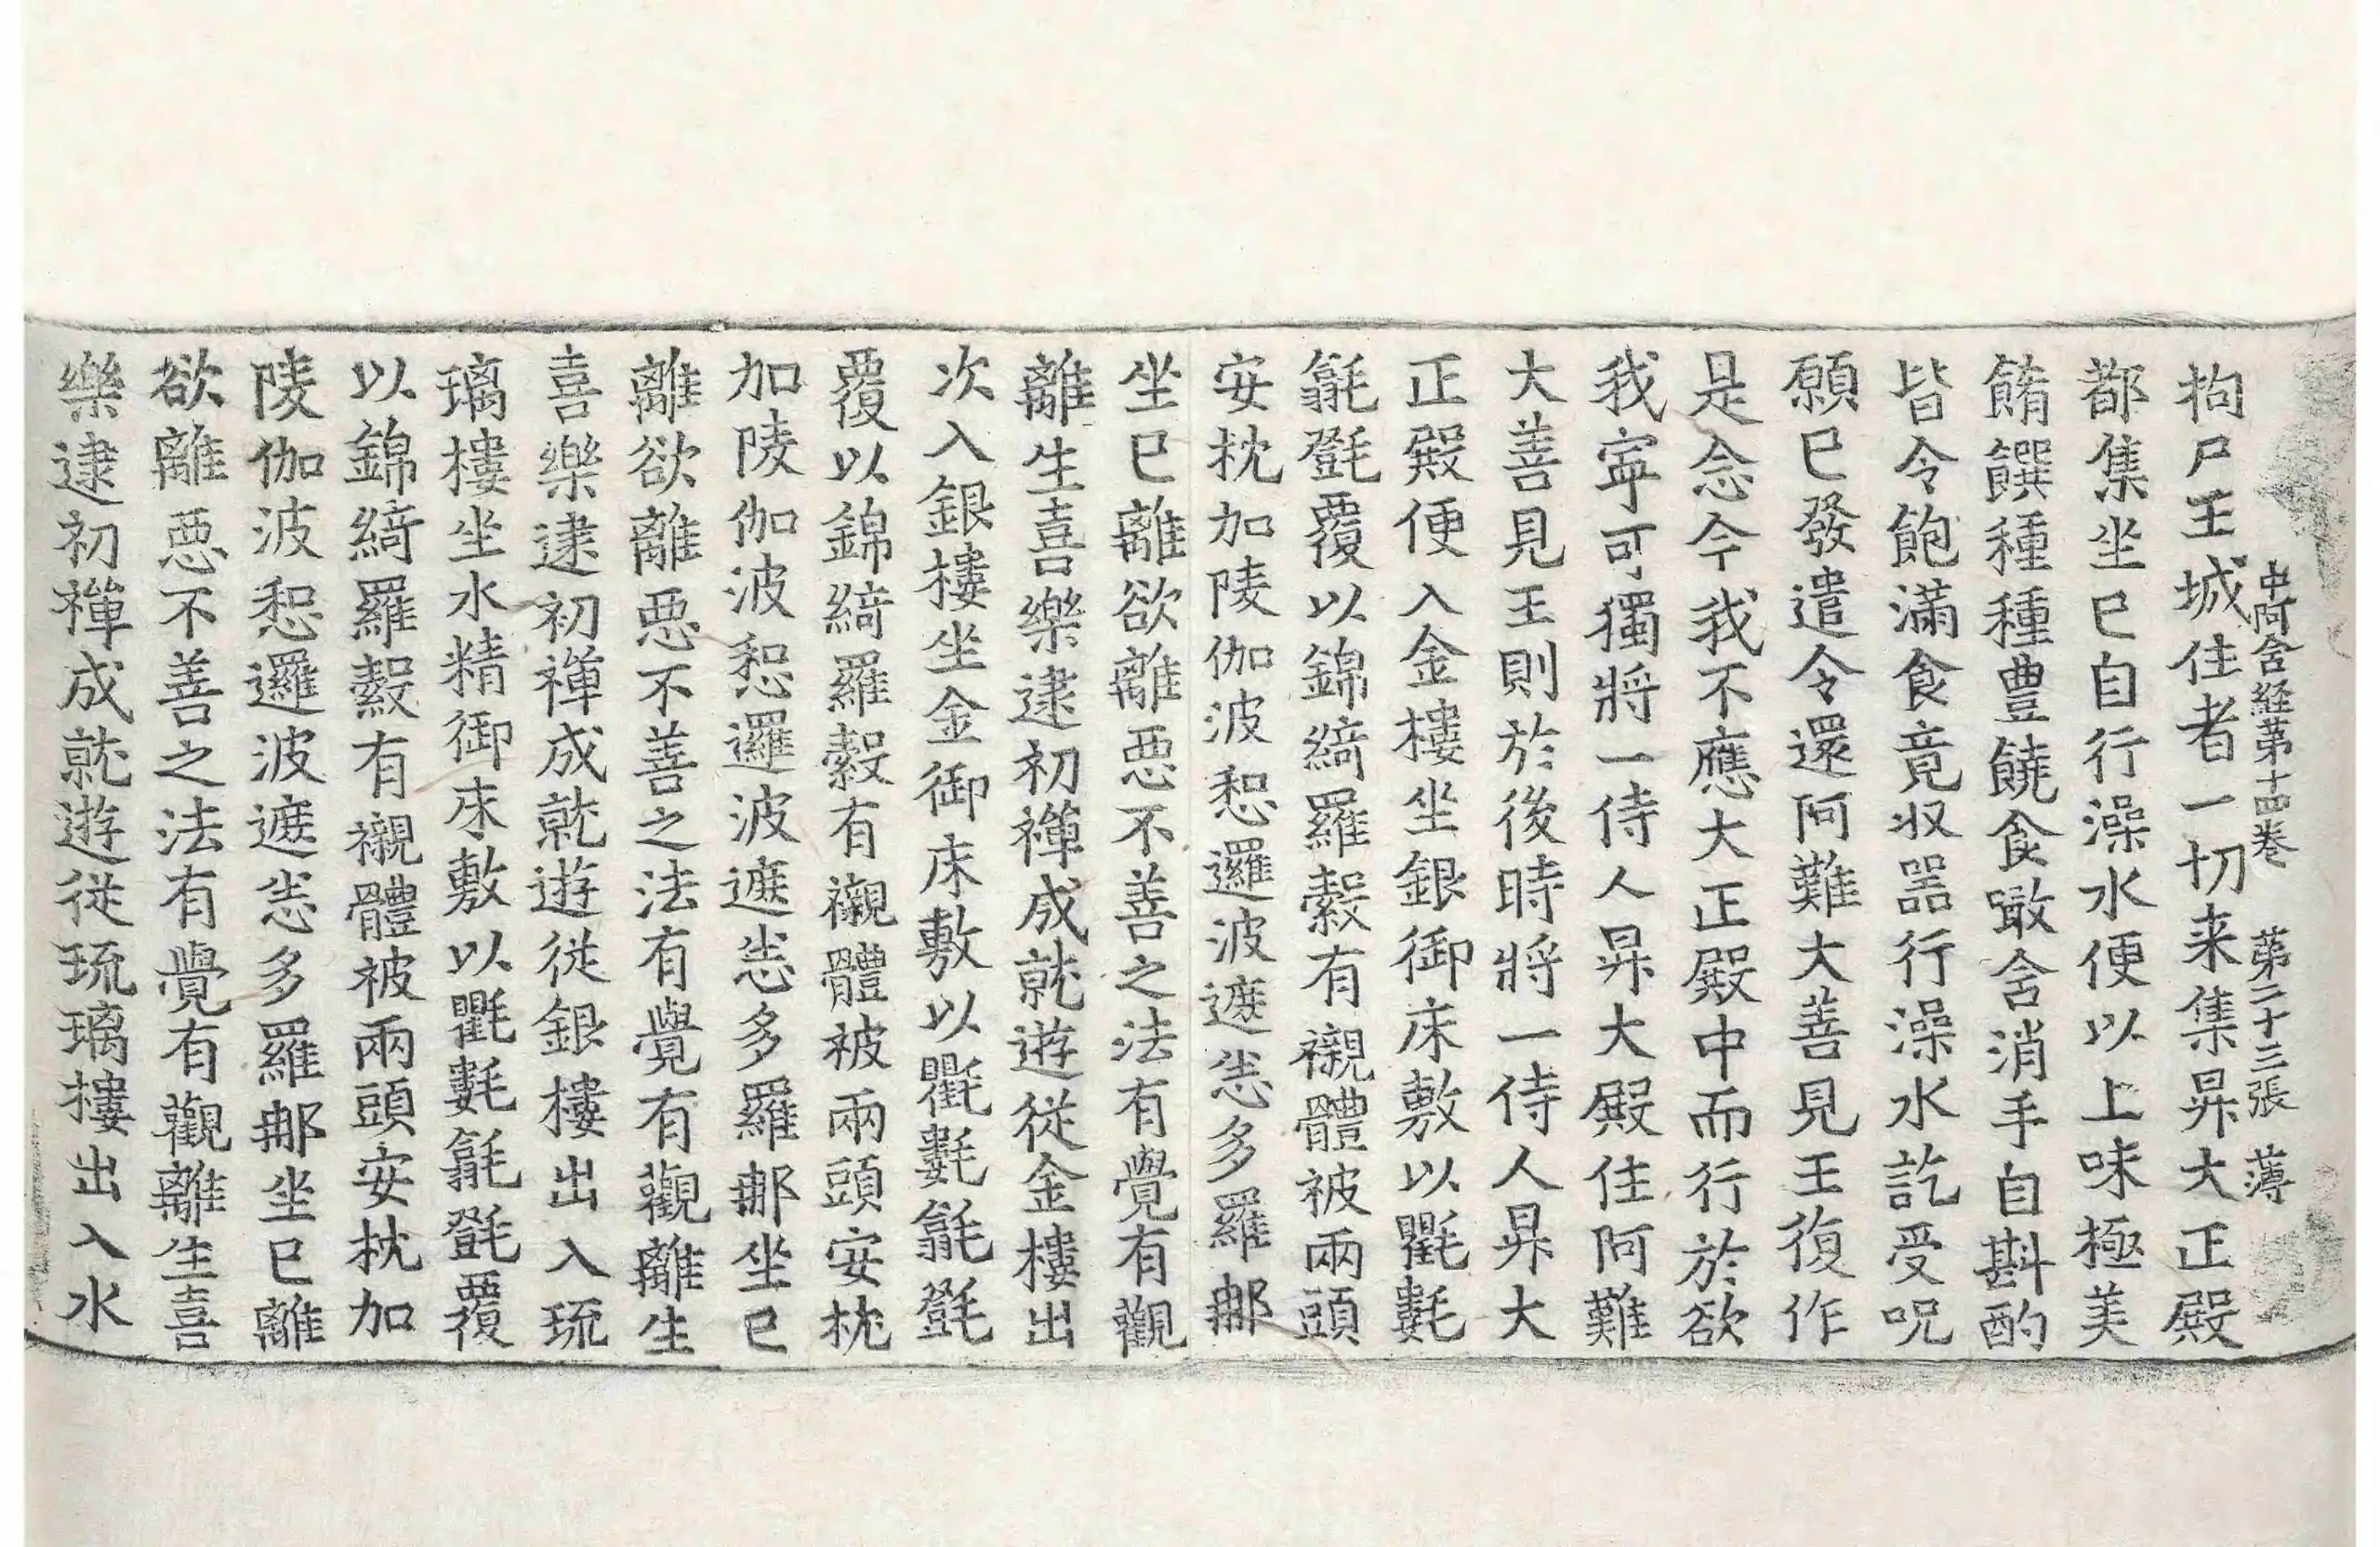 中阿含經第十四卷 第二十三張 薄
拘尸王城住者一切来集昇大正殿
都集坐巳自行澡水便以上味極美
餚饌種種豊饒食噉含消手自斟酌
皆令飽滿食竟収器行澡水訖受呪
願巳發遣令還阿難大善見王復作
是念今我不應大正殿中而行於欲
我寧可獨將一侍人昇大殿住阿難
大善見王則於後時將一侍人昇大
正殿便入金樓坐銀御床敷以氍氀
𣰆㲪覆以錦綺羅縠有襯體被兩頭
安枕加陵伽波惒邏波遮悉多羅那
坐巳離欲離惡不善之法有覺有觀
離生喜樂逮初禪成就遊從金樓出
次入銀樓坐金御床敷以氍氀𣰆㲪
覆以錦綺羅縠有襯體被兩頭安枕
加陵伽波惒邏波遮悉多羅那坐巳
離欲離惡不善之法有覺有觀離生
喜樂逮初禪成就遊從銀樓出入琉
璃樓坐水精御床敷以氍氀𣰆㲪覆
以錦綺羅縠有襯體被兩頭安枕加
陵伽波惒邏波遮悉多羅那坐巳離
欲離惡不善之法有覺有觀離生喜
樂逮初禪成就遊從琉璃樓出入水